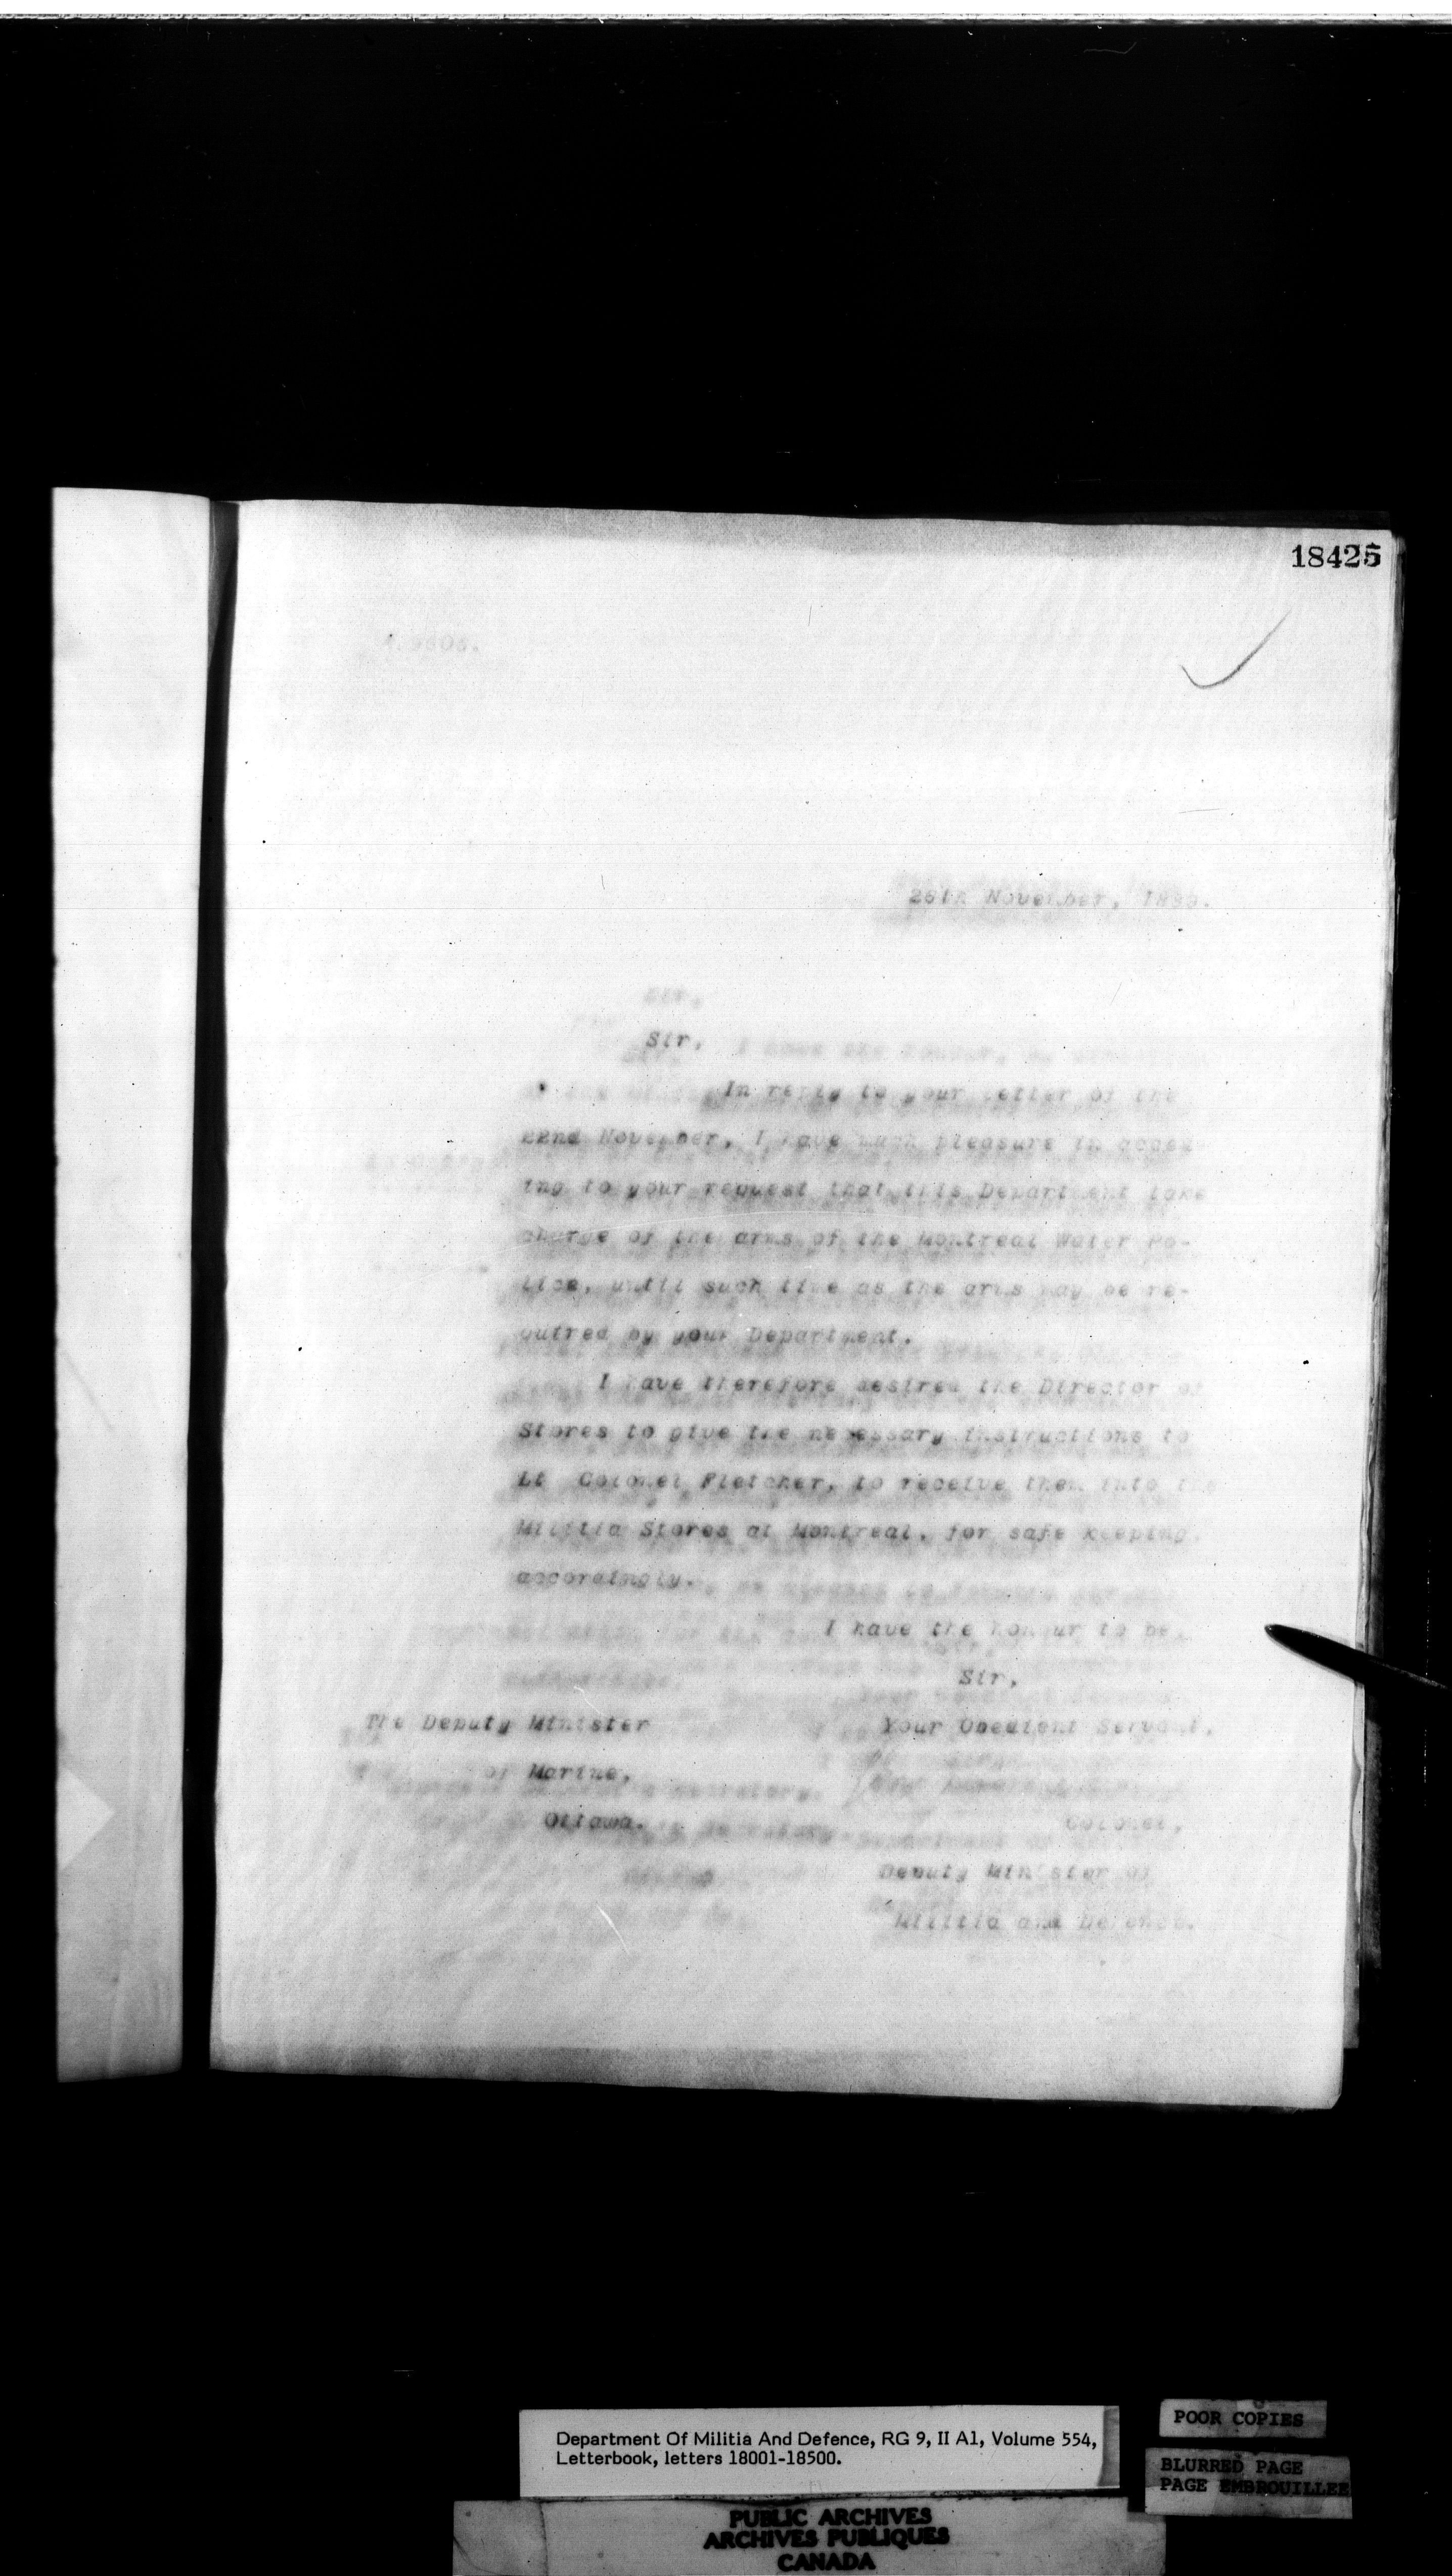 18425
9606.
26th November, 1889.
Sir,
In reply to your letter of the
22nd November, I have much pleasure in acced-
ing to your request that this Department take
charge of the arms of the Montreal Water Po-
lice, until such time as the arms may be re-
quired by your Department.
I have therefore desired the Director of
Stores to give the necessary instructions to
Lt Colonel Fletcher, to receive them into the
Militia Stores at Montreal, for safe keeping
accordingly.
I have the honour to be,
Sir,
The Deputy Minister
Your Obedient Servant,
of Marine,
Ottawa.
Colonel,
Deputy Minister of
Militia and Defence.
Department Of Militia And Defence, RG 9, II A1, Volume 554,
Letterbook, letters 18001-18500.
POOR COPIES
BLURRED PAGE
PAGE EMBROUILLEE
PUBLIC ARCHIVES
ARCHIVES PUBLIQUES
CANADA